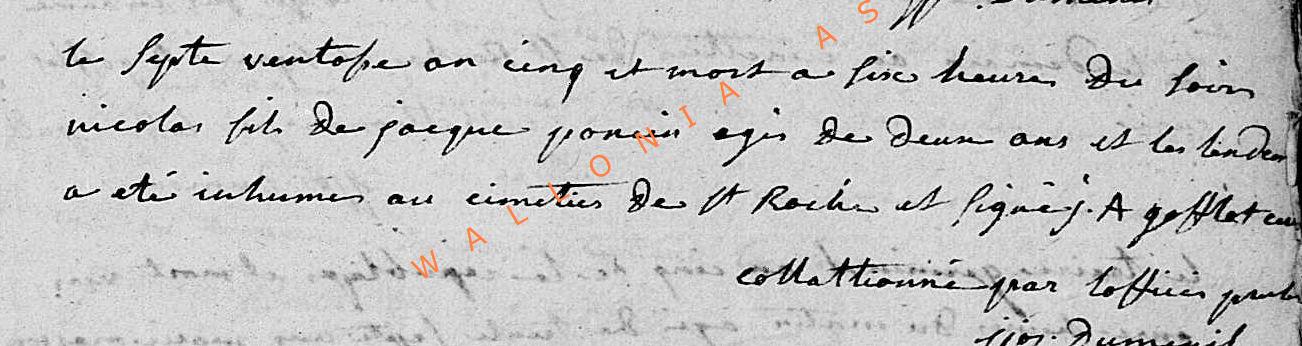 Dumenil
le septe ventosse an cinq et mort a six heures du soire
nicolas fils de jacque poncin agis de deux ans et les lendem
a eté inhumes au cimetier de st Roche et signé j. A gofflot curé
collattionné par l'officier public
Dumenil
WALLONIA AS